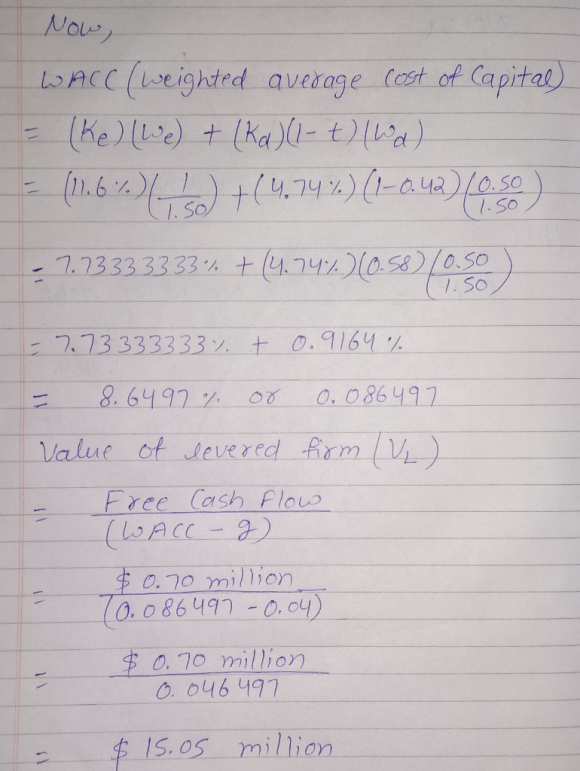 Now,
WACC (weighted average cost of Capital)
= (Ke)(We) + (Kd)(1-t)(Wd)
= (11.6%)(1/1.50) + (4.74%)(1-0.42)(0.50/1.50)
= 7.73333333% + (4.74%)(0.58)(0.50/1.50)
= 7.73333333% + 0.9164%
= 8.6497% or 0.086497
Value of levered firm (VL)
= Free Cash Flow / (WACC - g)
= $0.70 million / (0.086497 - 0.04)
= $0.70 million / 0.046497
= $15.05 million